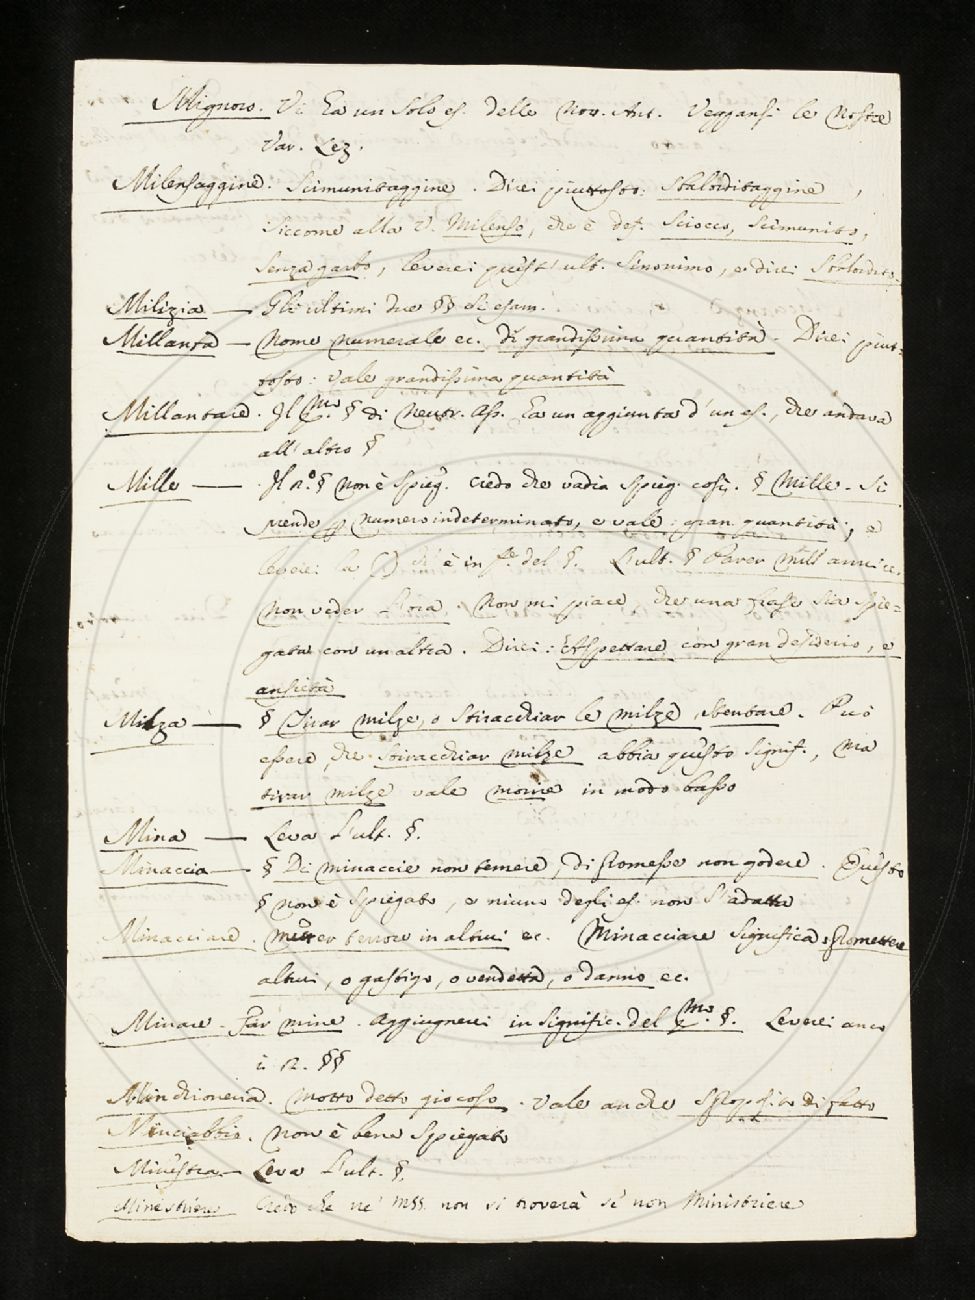 Mignoro. Vi ha un solo es. delle Nov. Ant. Veggansi le nostre
Var. Lez.
Milensaggine. Scimunitaggine. Direi piuttosto: Stalorditaggine,
siccome alla V. Milenso, che è def. Sciocco, Scimunito,
senza garbo, leverei quest' ult. sinonimo, e direi Stalordito.
Milizia — Gli ultimi due §§ si esam.
Millanta — Nome numerale ec. di grandissima quantità. Direi piut=
tosto: vale grandissima quantità
Millantare. Il § di Neutr. Ass. ha un aggiunta d'un es., che andava
all'altro §
Mille — Il n.º § non è spieg. credo che vadia spieg. così. § Mille. Si
prende numero indeterminato, e vale: gran quantità; e
leverei la è in del §. L'ult. § Parer mill'anni ec.
non veder l'ora. Non mi piace, che una frase sia spie=
gata con un altra. Direi: Aspettare con gran desiderio, e
ansietà
Milza — § Tirar milze, o stiracchiar le milze, stentare. Può
essere, che stiracchiar milze abbia questo signif., ma
tirar milze vale morire in modo basso
Mina — Leva l'ult. §.
Minaccia — § Di minaccie non temere, di promesse non godere. Questo
§ non è spiegato, e niuno degli es. non s'adatta
Minacciare. Metter terrore in altrui ec. Minacciare significa: promettere
altrui, o gastigo, o vendetta, o danno ec.
Minare. Far mine. Aggiugnerei in signific. del §. Leverei anco
i 2. §§
Minchioneria. Motto detto giocoso. Vale anche sproposito di fatto
Minciabbio. Non è bene spiegato
Minestra — Leva l'ult. §.
Minestriere Credo che ne' MSS. non si troverà se non Ministriere